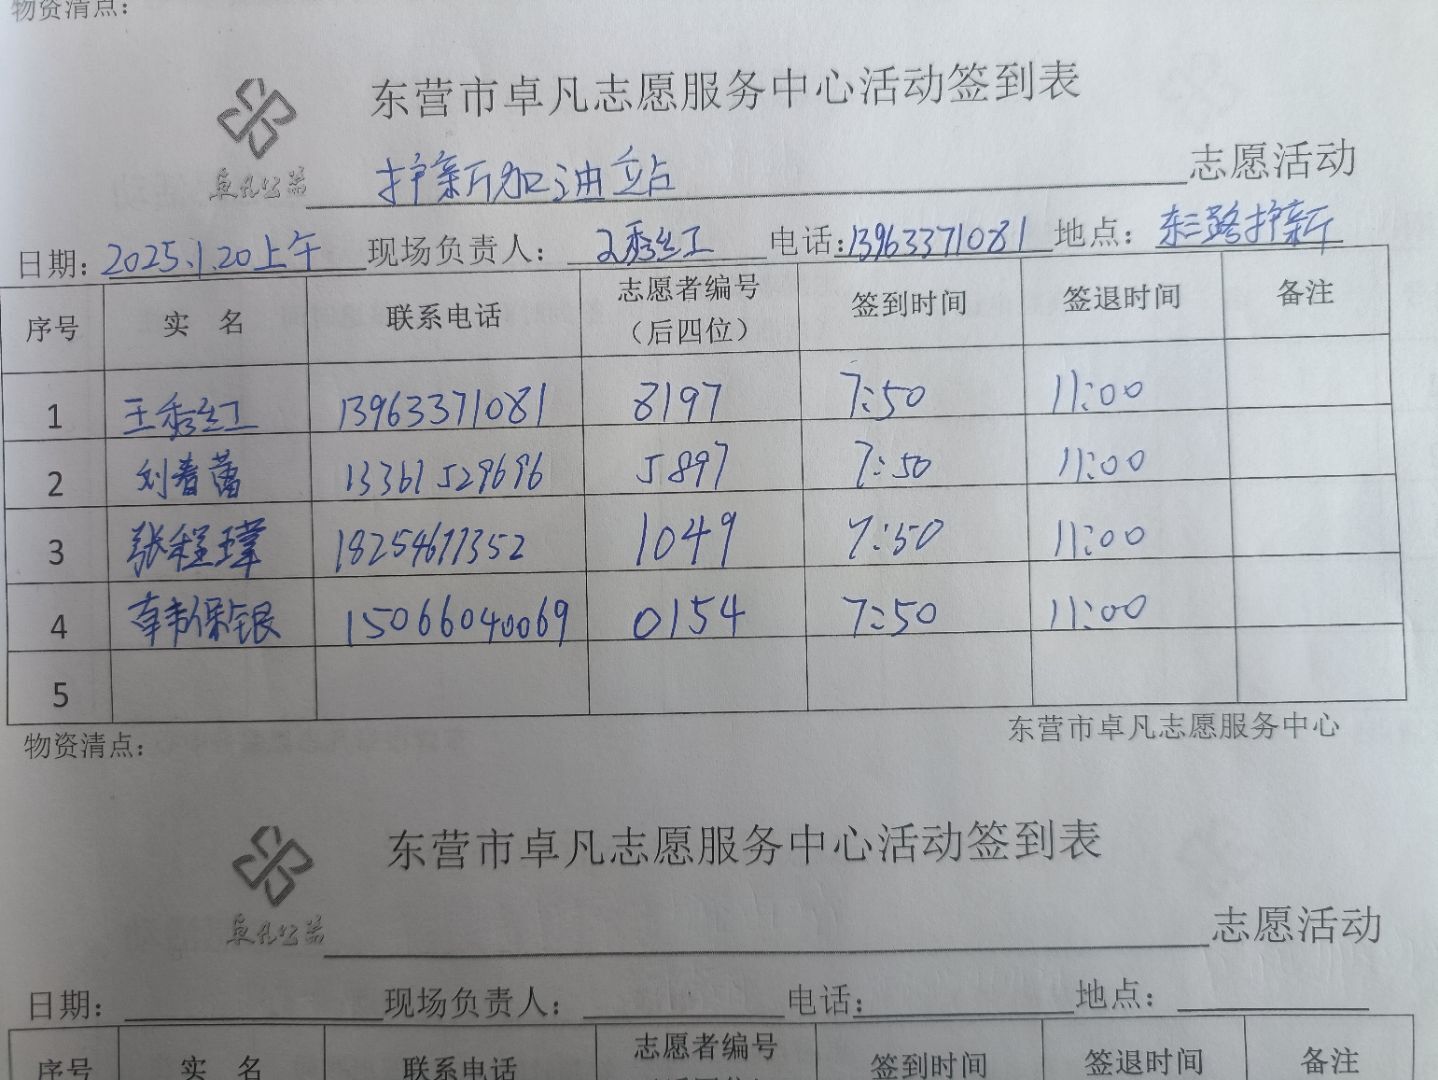 物资清点：
东营市卓凡志愿服务中心活动签到表
卓凡公益 护新加油站 志愿活动
日期：2025.1.20上午 现场负责人：王秀红 电话：13963371081 地点：东三路护新厅
序号 实 名 联系电话 志愿者编号（后四位） 签到时间 签退时间 备注
1 王秀红 13963371081 8197 7:50 11:00
2 刘春蕾 13361529696 5897 7:50 11:00
3 张程瑋 18254677352 1049 7:50 11:00
4 韩保银 15066040069 0154 7:50 11:00
5
物资清点： 东营市卓凡志愿服务中心
东营市卓凡志愿服务中心活动签到表
卓凡公益 志愿活动
日期： 现场负责人： 电话： 地点：
序号 实 名 联系电话 志愿者编号 签到时间 签退时间 备注